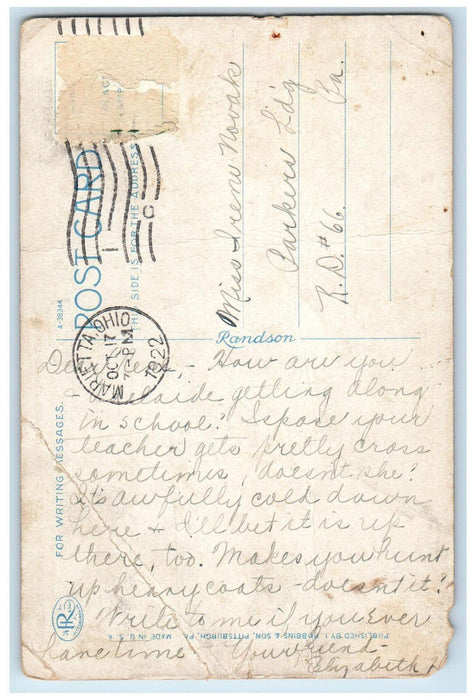 POST CARD
THE SIDE IS FOR THE ADDRESS
A-38344
MARIETTA, OHIO
OCT 17
7 PM
1922
Miss Irene Novak
Parkers Ld'g
R.D. #66. Pa.
Randson
FOR WRITING MESSAGES
Dear Irene, - How are you
& Adelaide getting along
in school? I spose your
teacher gets pretty cross
sometimes, doesn't she?
It's awfully cold down
here & I'll bet it is up
there, too. Makes you hunt
up heavy coats - doesn't it?
Write to me if you ever
have time - Your friend -
Elizabeth
PUBLISHED BY I. ROBBINS & SON, PITTSBURGH, PA. MADE IN U.S.A.